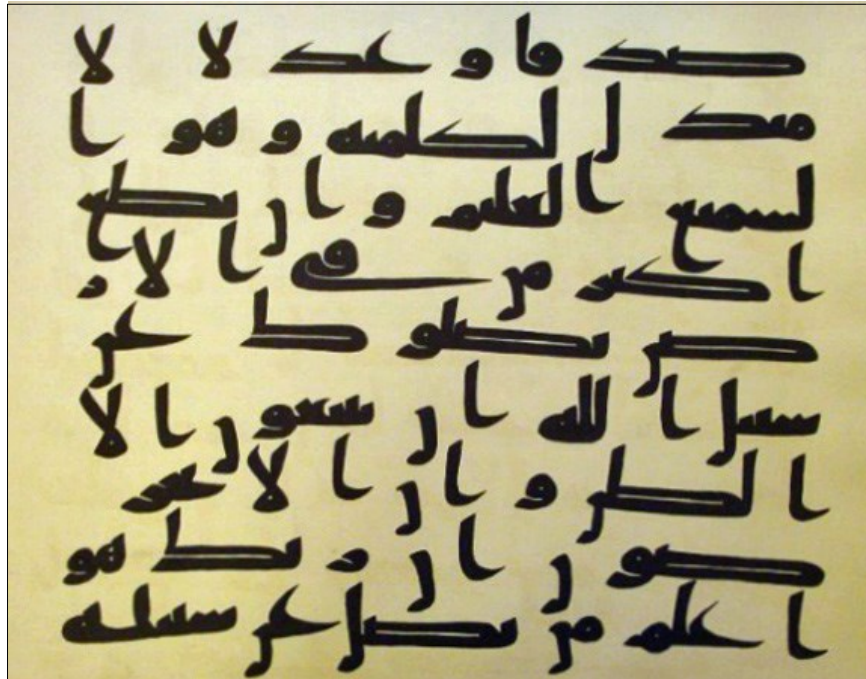 صدقا وعدلا لا
مبدل لكلمته وهو ا
لسميع العليم وان تطع
اكثر من في الار
ض يضلوك عن
سبيل الله ان يتبعون الا
الظن وان الا يخر
صون ان ربك هو
اعلم من يضل عن سبيله